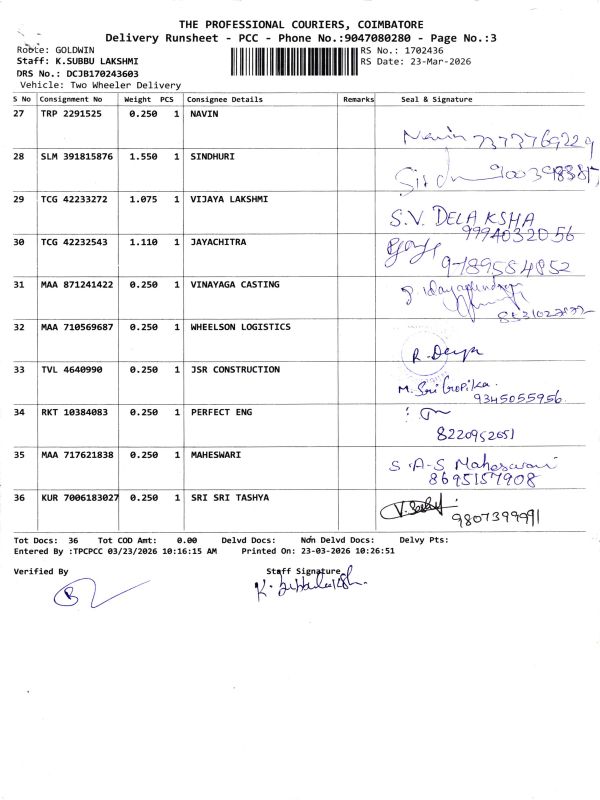 THE PROFESSIONAL COURIERS, COIMBATORE
Delivery Runsheet - PCC - Phone No.:9047080280 - Page No.:3
Route: GOLDWIN
RS No.: 1702436
Staff: K.SUBBU LAKSHMI
RS Date: 23-Mar-2026
DRS No.: DCJB170243603
Vehicle: Two Wheeler Delivery
S No Consignment No Weight PCS Consignee Details Remarks Seal & Signature
27 TRP 2291525 0.250 1 NAVIN
Navin 7373769229
28 SLM 391815876 1.550 1 SINDHURI
29 TCG 42233272 1.075 1 VIJAYA LAKSHMI
S.V. DELAKSHA
9994032056
30 TCG 42232543 1.110 1 JAYACHITRA
9789584852
31 MAA 871241422 0.250 1 VINAYAGA CASTING
32 MAA 710569687 0.250 1 WHEELSON LOGISTICS
R. Deepa
33 TVL 4640990 0.250 1 JSR CONSTRUCTION
M. Sri Gopika.
9345055956
34 RKT 10384083 0.250 1 PERFECT ENG
8220952651
35 MAA 717621838 0.250 1 MAHESWARI
S.A-S Maheswari
8695157908
36 KUR 7006183027 0.250 1 SRI SRI TASHYA
9807399991
Tot Docs: 36 Tot COD Amt: 0.00 Delvd Docs: Non Delvd Docs: Delvy Pts:
Entered By :TPCPCC 03/23/2026 10:16:15 AM Printed On: 23-03-2026 10:26:51
Verified By Staff Signature